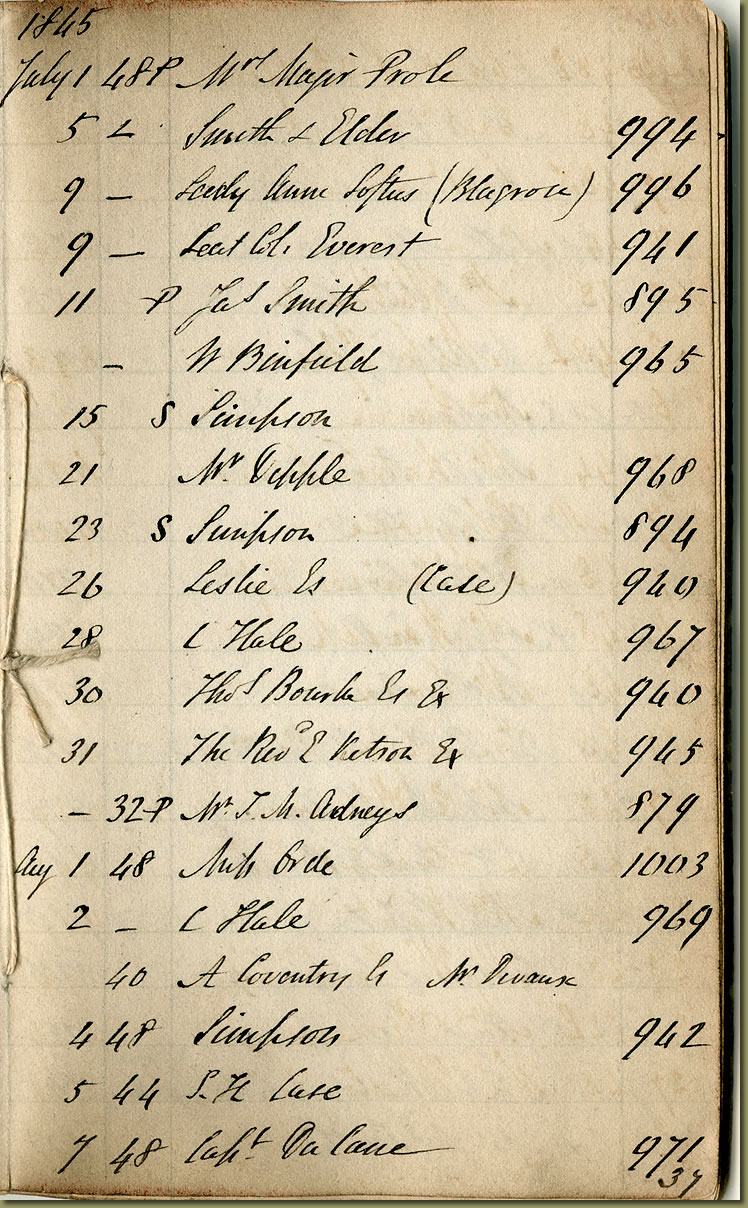 1845
July 1 48 P Mrs Major Prole
5 – Smith & Elder 994
9 – Lady Anne Loftus (Blagrove) 996
9 – Leut Col. Everest 941
11 P Jas Smith 895
– W Binfield 965
15 S Simpson
21 Mr. Dipple 968
23 S Simpson 894
26 Leslie Es (Case) 940
28 C Hale 967
30 Thos Bourke Es Ex 940
31 The Revd E Kitson Ex 945
– 32 P Mr. T. M. Adneys 879
Aug 1 48 Miss Orde 1003
2 – C Hale 969
40 A Coventry Es Mr
4 48 Simpson 942
5 44 S. H Case
7 48 Capt. Du Cane 971
37